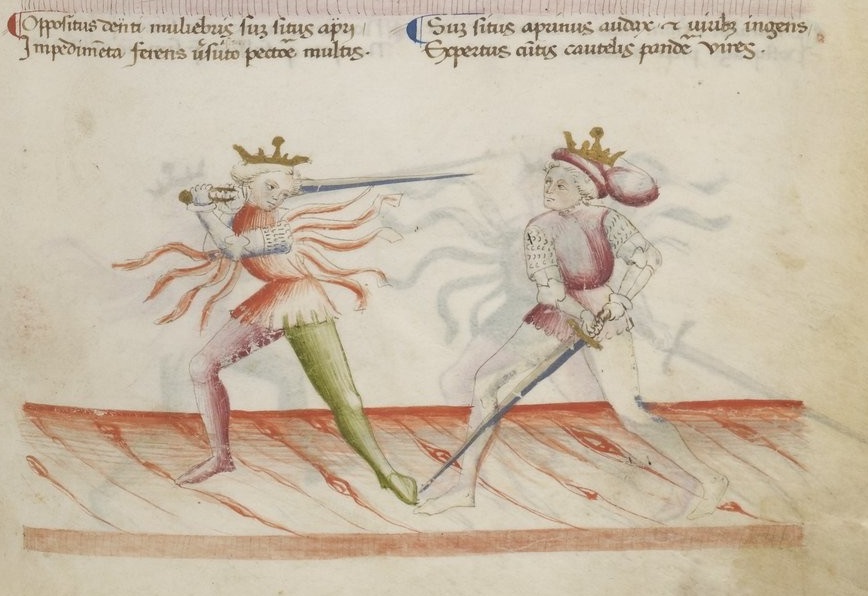 Oppositus denti muliebris suz situs apri
Impedimēta ferens v̄suto pectoē multis.
Suz situs aprinus audax ⁊ uiribꝫ ingens
Expertus cūtis cautelis pandē vires.